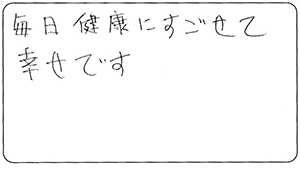 毎日健康にすごせて
幸せです